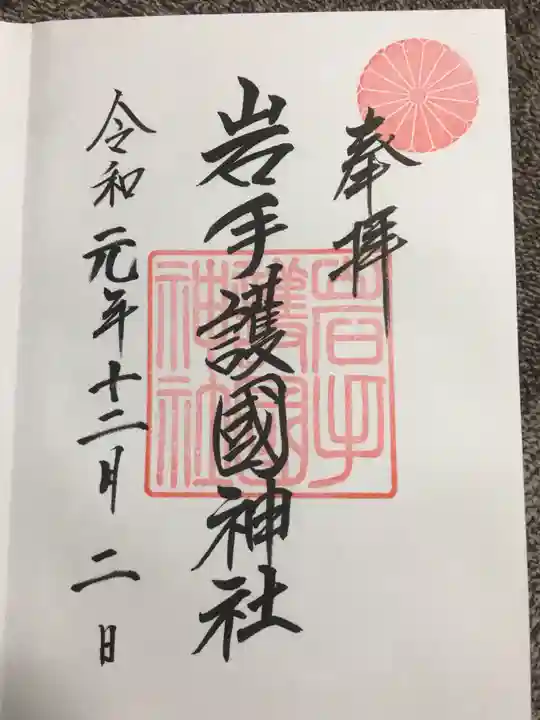 奉拝
岩手護國神社
岩手
護國
神社
令和元年十二月二日